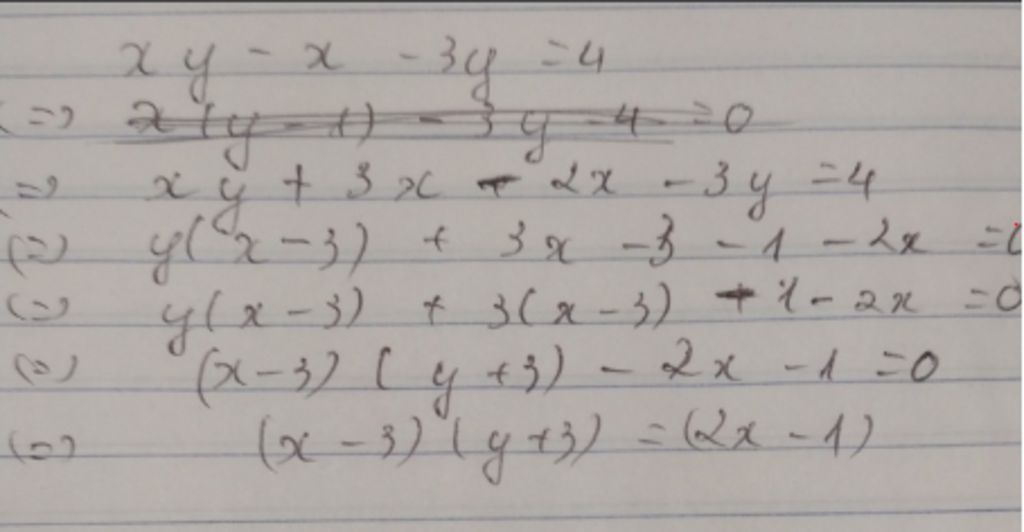 xy - x - 3y = 4
(=) x(y - 1) - 3y - 4 = 0
=) xy + 3x - 2x - 3y = 4
(=) y(x - 3) + 3x - 3 - 1 - 2x = 0
(=) y(x - 3) + 3(x - 3) - 1 - 2x = 0
(=) (x - 3)(y + 3) - 2x - 1 = 0
(=) (x - 3)(y + 3) = (2x - 1)